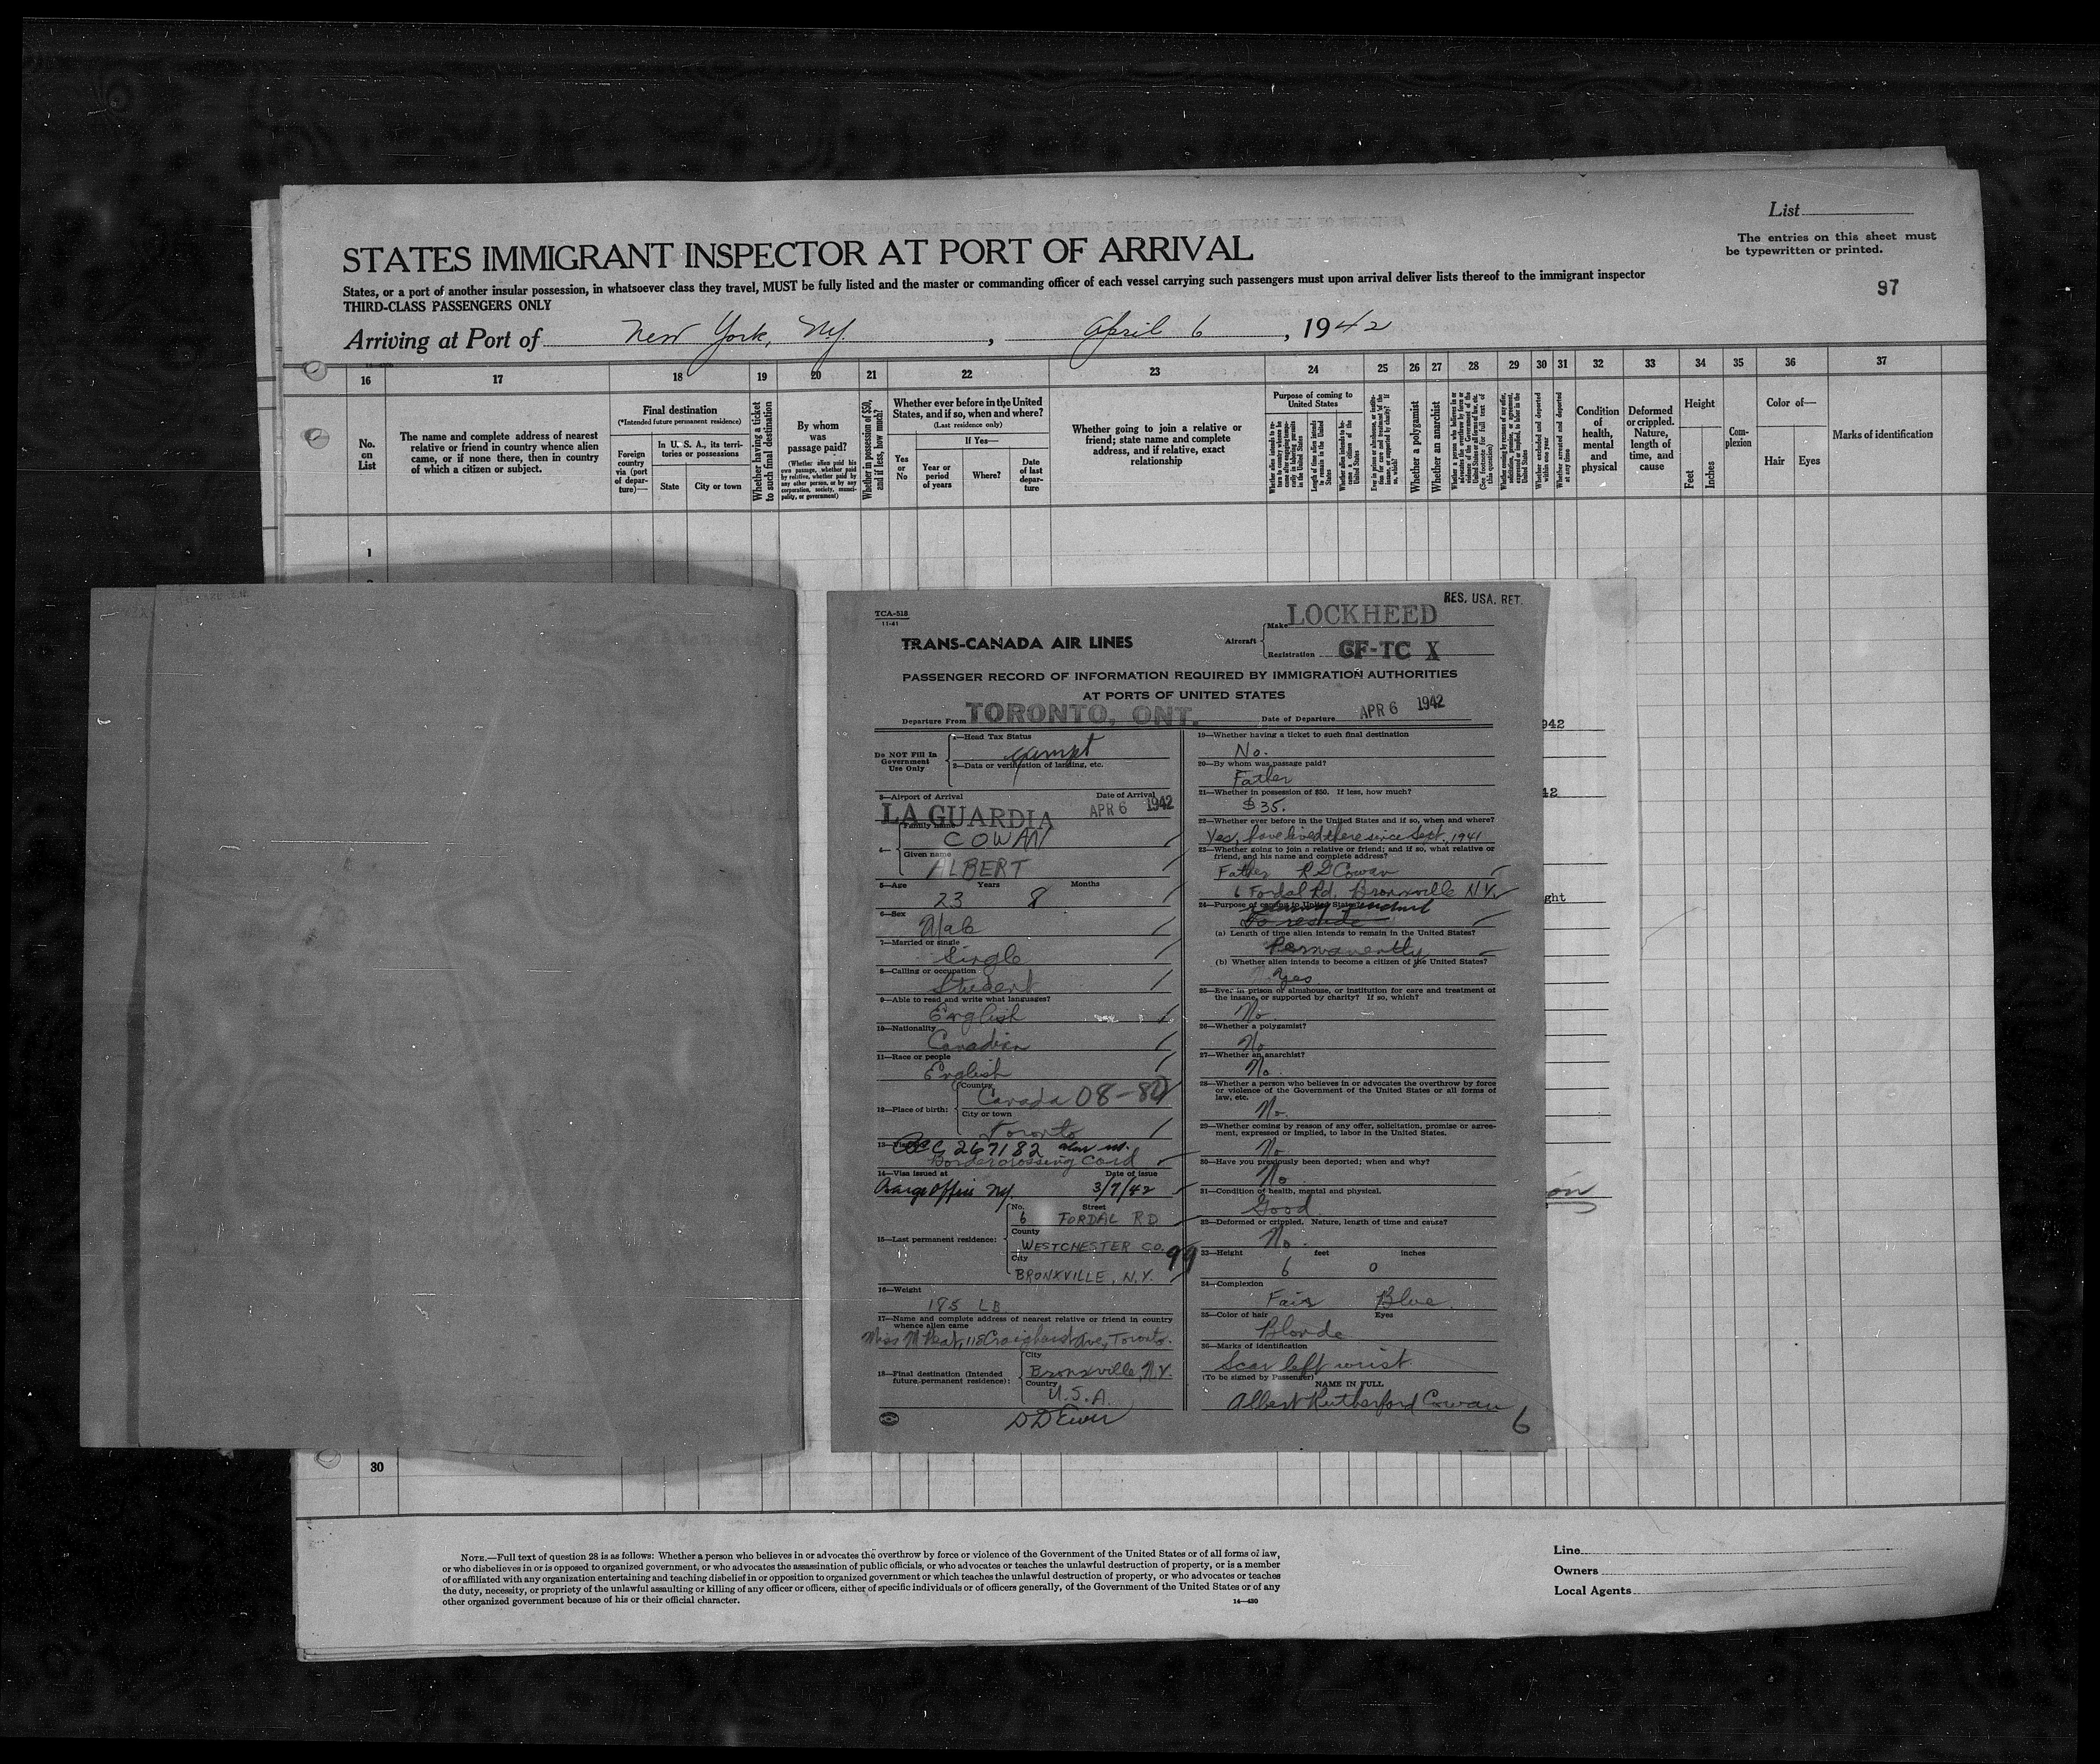 List
The entries on this sheet must
be typewritten or printed.
97
STATES IMMIGRANT INSPECTOR AT PORT OF ARRIVAL
States, or a port of another insular possession, in whatsoever class they travel, MUST be fully listed and the master or commanding officer of each vessel carrying such passengers must upon arrival deliver lists thereof to the immigrant inspector
THIRD-CLASS PASSENGERS ONLY
Arriving at Port of New York, N.Y. , April 6 , 1942
16 17 18 19 20 21 22 23 24 25 26 27 28 29 30 31 32 33 34 35 36 37
No. on List
The name and complete address of nearest
relative or friend in country whence alien
came, or if none there, then in country
of which a citizen or subject.
Final destination
(*Intended future permanent residence)
Foreign country via (port of departure)—
In U. S. A., its territories or possessions
State
City or town
Whether having a ticket to such final destination
By whom was passage paid?
(Whether alien paid his own passage, whether paid by relative, whether paid by any other person, or by any corporation, society, municipality, or government)
Whether in possession of $50, and if less, how much?
Whether ever before in the United
States, and if so, when and where?
(Last residence only)
Yes or No
If Yes—
Year or period of years
Where?
Date of last departure
Whether going to join a relative or
friend; state name and complete
address, and if relative, exact
relationship
Purpose of coming to
United States
Whether a polygamist
Whether an anarchist
Condition of health, mental and physical
Deformed or crippled. Nature, length of time, and cause
Height
Feet
Inches
Complexion
Color of—
Hair
Eyes
Marks of identification
1
RES. USA. RET.
TCA-518
11-41
TRANS-CANADA AIR LINES
Aircraft
Make LOCKHEED
Registration CF-TC X
PASSENGER RECORD OF INFORMATION REQUIRED BY IMMIGRATION AUTHORITIES
AT PORTS OF UNITED STATES
Departure From TORONTO, ONT. Date of Departure APR 6 1942
Do NOT Fill In
Government
Use Only
1—Head Tax Status
exempt
2—Data or verification of landing, etc.
3—Airport of Arrival Date of Arrival
LA GUARDIA APR 6 1942
4—
Family name
COWAN
Given name
ALBERT
5—Age Years Months
23 8
6—Sex
Male
7—Married or single
Single
8—Calling or occupation
Student
9—Able to read and write what languages?
English
10—Nationality
Canadian
11—Race or people
English
12—Place of birth:
Country
Canada 08-82
City or town
Toronto
267182
Bordercrossing Card
14—Visa issued at Date of issue
Barge Office N.Y. 3/7/42
15—Last permanent residence:
No. Street
6 FORDAL RD
County
WESTCHESTER CO. 99
City
BRONXVILLE, N.Y.
16—Weight
185 LB
17—Name and complete address of nearest relative or friend in country
whence alien came
Miss M Peat, 118 Craighurst Ave, Toronto.
18—Final destination (Intended
future permanent residence):
City
Bronxville, N.Y.
Country
U.S.A.
19—Whether having a ticket to such final destination
No.
20—By whom was passage paid?
Father
21—Whether in possession of $50. If less, how much?
$35.
22—Whether ever before in the United States and if so, when and where?
Yes, have lived there since Sept. 1941
23—Whether going to join a relative or friend; and if so, what relative or
friend, and his name and complete address?
Father R G Cowan
6 Fordal Rd. Bronxville N.Y.
24—Purpose of coming to United States
To reside
(a) Length of time alien intends to remain in the United States?
Permanently
(b) Whether alien intends to become a citizen of the United States?
Yes
25—Ever in prison or almshouse, or institution for care and treatment of
the insane, or supported by charity? If so, which?
No
26—Whether a polygamist?
No
27—Whether an anarchist?
No.
28—Whether a person who believes in or advocates the overthrow by force
or violence of the Government of the United States or all forms of
law, etc.
No.
29—Whether coming by reason of any offer, solicitation, promise or agree-
ment, expressed or implied, to labor in the United States.
No
30—Have you previously been deported; when and why?
No
31—Condition of health, mental and physical.
Good
32—Deformed or crippled. Nature, length of time and cause?
No.
33—Height feet inches
6 0
34—Complexion
Fair Blue
35—Color of hair Eyes
Blonde
36—Marks of identification
Scar left wrist.
(To be signed by Passenger)
NAME IN FULL
Albert Rutherford Cowan
6
942
42
ght
on
30
NOTE.—Full text of question 28 is as follows: Whether a person who believes in or advocates the overthrow by force or violence of the Government of the United States or of all forms of law,
or who disbelieves in or is opposed to organized government, or who advocates the assassination of public officials, or who advocates or teaches the unlawful destruction of property, or is a member
of or affiliated with any organization entertaining and teaching disbelief in or opposition to organized government or which teaches the unlawful destruction of property, or who advocates or teaches
the duty, necessity, or propriety of the unlawful assaulting or killing of any officer or officers, either of specific individuals or of officers generally, of the Government of the United States or of any
other organized government because of his or their official character.
14—430
Line
Owners
Local Agents